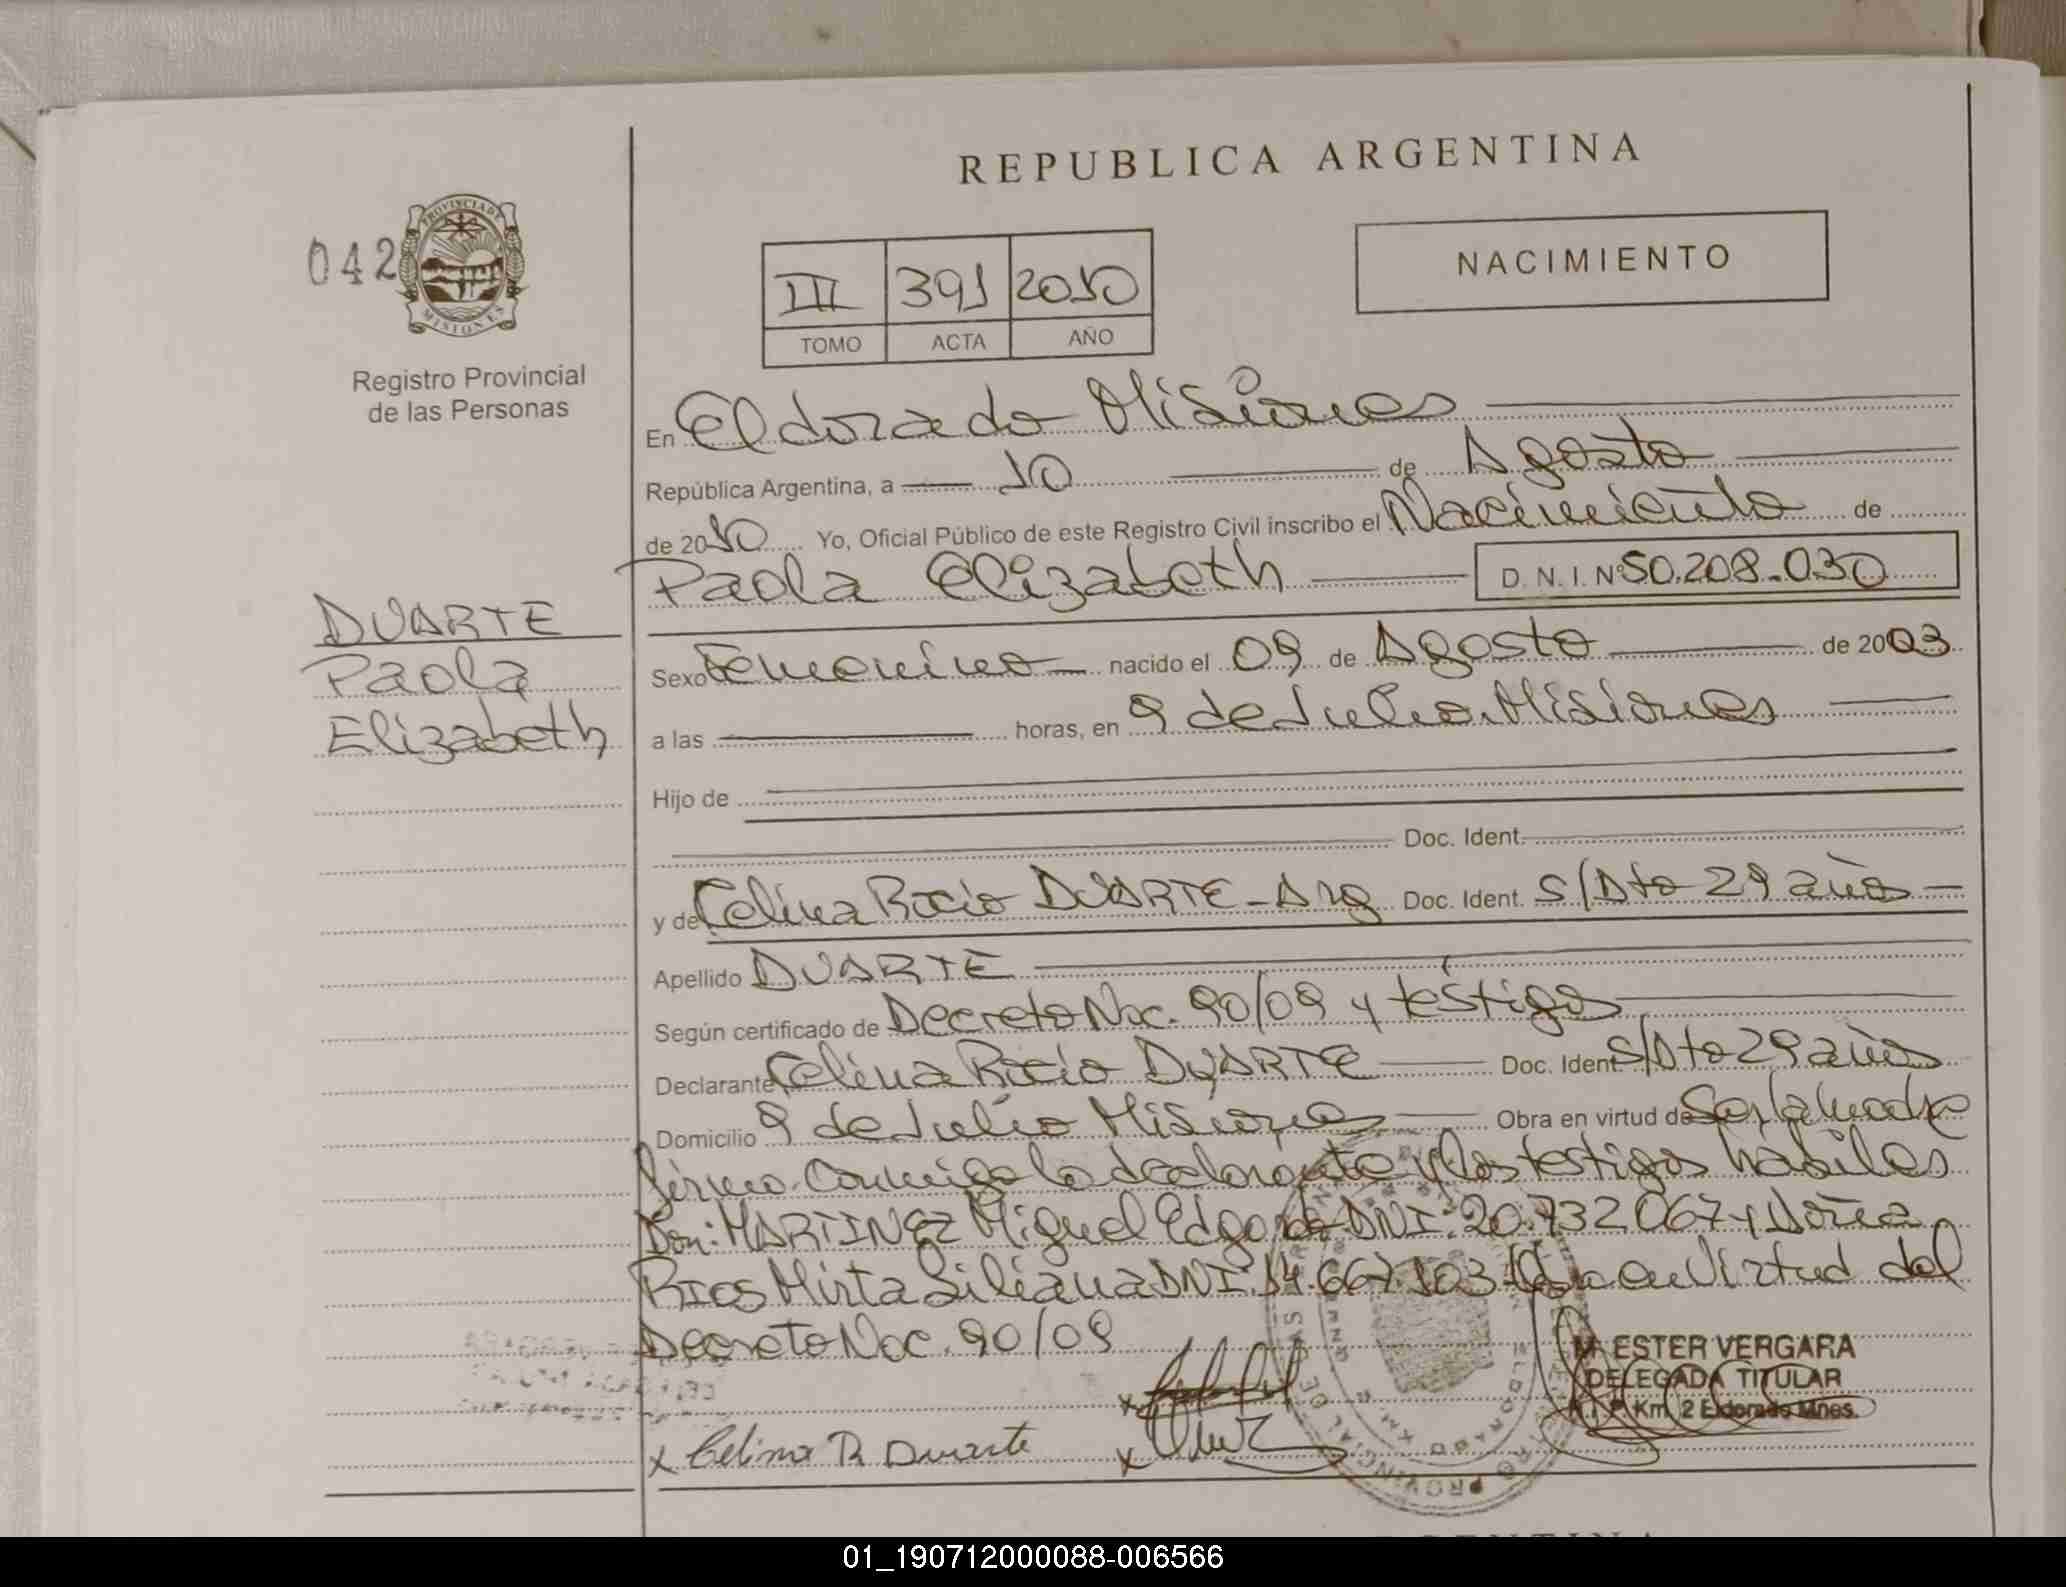 REPUBLICA ARGENTINA
042
PROVINCIA DE
MISIONES
Registro Provincial
de las Personas
III 391 2010
TOMO ACTA AÑO
NACIMIENTO
En Eldorado Misiones
República Argentina, a 10 de Agosto
de 2010 Yo, Oficial Público de este Registro Civil inscribo el Nacimiento de
Paola Elizabeth D. N. I. Nº 50.208.030
DUARTE
Paola
Elizabeth
Sexo Femenino nacido el 09 de Agosto de 2003
a las horas, en 9 de Julio Misiones
Hijo de
Doc. Ident.
y de Celina Rocio DUARTE - Arg Doc. Ident. S/Dto 29 años
Apellido DUARTE
Según certificado de Decreto Nac. 90/09 y testigos
Declarante Celina Rocio DUARTE Doc. Ident S/Dto 29 años
Domicilio 9 de Julio Misiones Obra en virtud de Ser la madre
firma conmigo la declarante y los testigos habiles
Don: MARTINEZ Miguel Edgardo DNI: 20.732.067 y Doña
RIOS Mirta Liliana DNI: 14.667.103 en Virtud del
Decreto Nac. 90/09
M. ESTER VERGARA
DELEGADA TITULAR
Km. 2 Eldorado Mnes.
x Celina R Duarte x
x
01_190712000088-006566